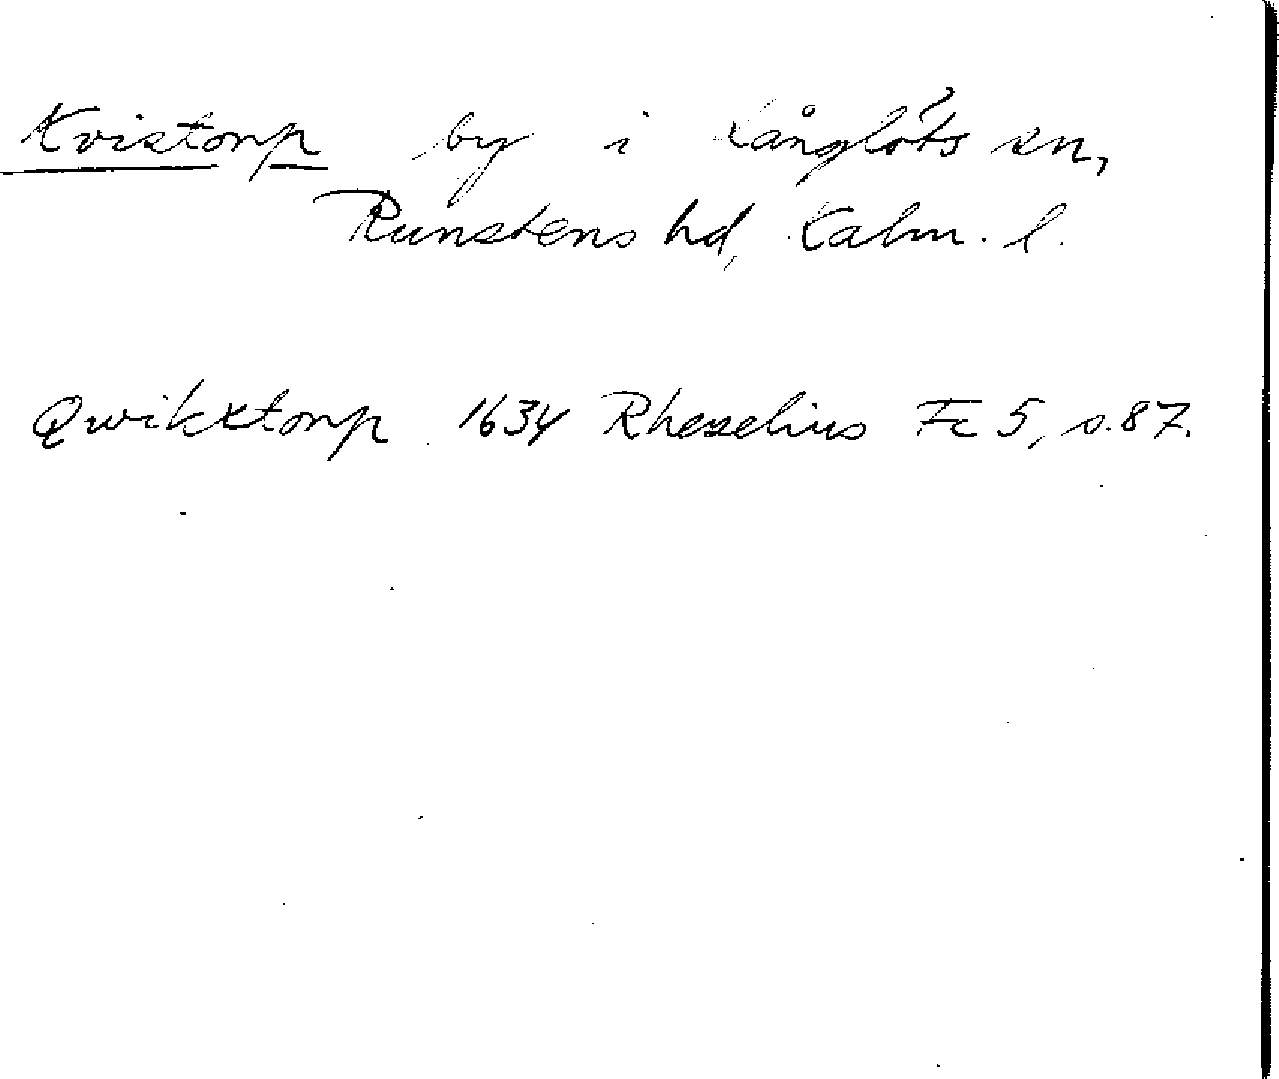 Kvistorp by i Långlöts sn,
Runstens hd, Kalm. l.
Qwikxtorp 1634 Rhezelius Fc 5, s. 87.